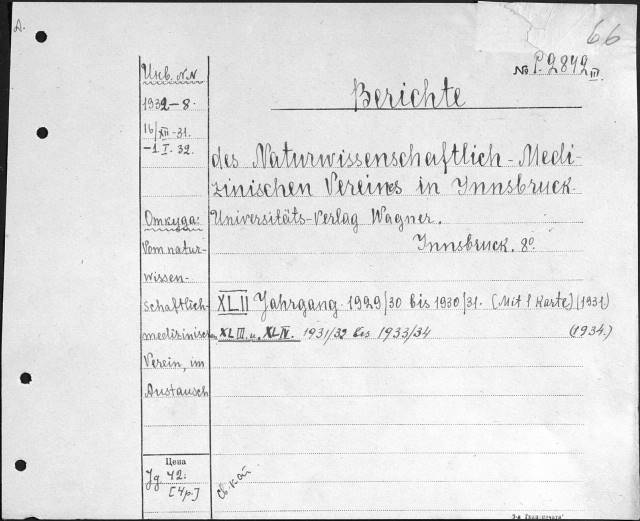 A.
66
No P.2842 III
Инв. N.N
1932-8.
16/XII-31.
-1. I. 32.
Berichte
des Naturwissenschaftlich-Medi-
zinischen Vereines in Innsbruck.
Universitäts-Verlag Wagner.
Innsbruck. 8º
Откуда:
Vom natur-
wissen-
schaftlich-
medizinischen
Verein, im
Austausch
XLII Jahrgang 1929/30 bis 1930/31. (Mit 1 Karte) (1931)
XLIII. u. XLIV. 1931/32 bis 1933/34 (1934.)
Цена
Jg 42:
[4p.]